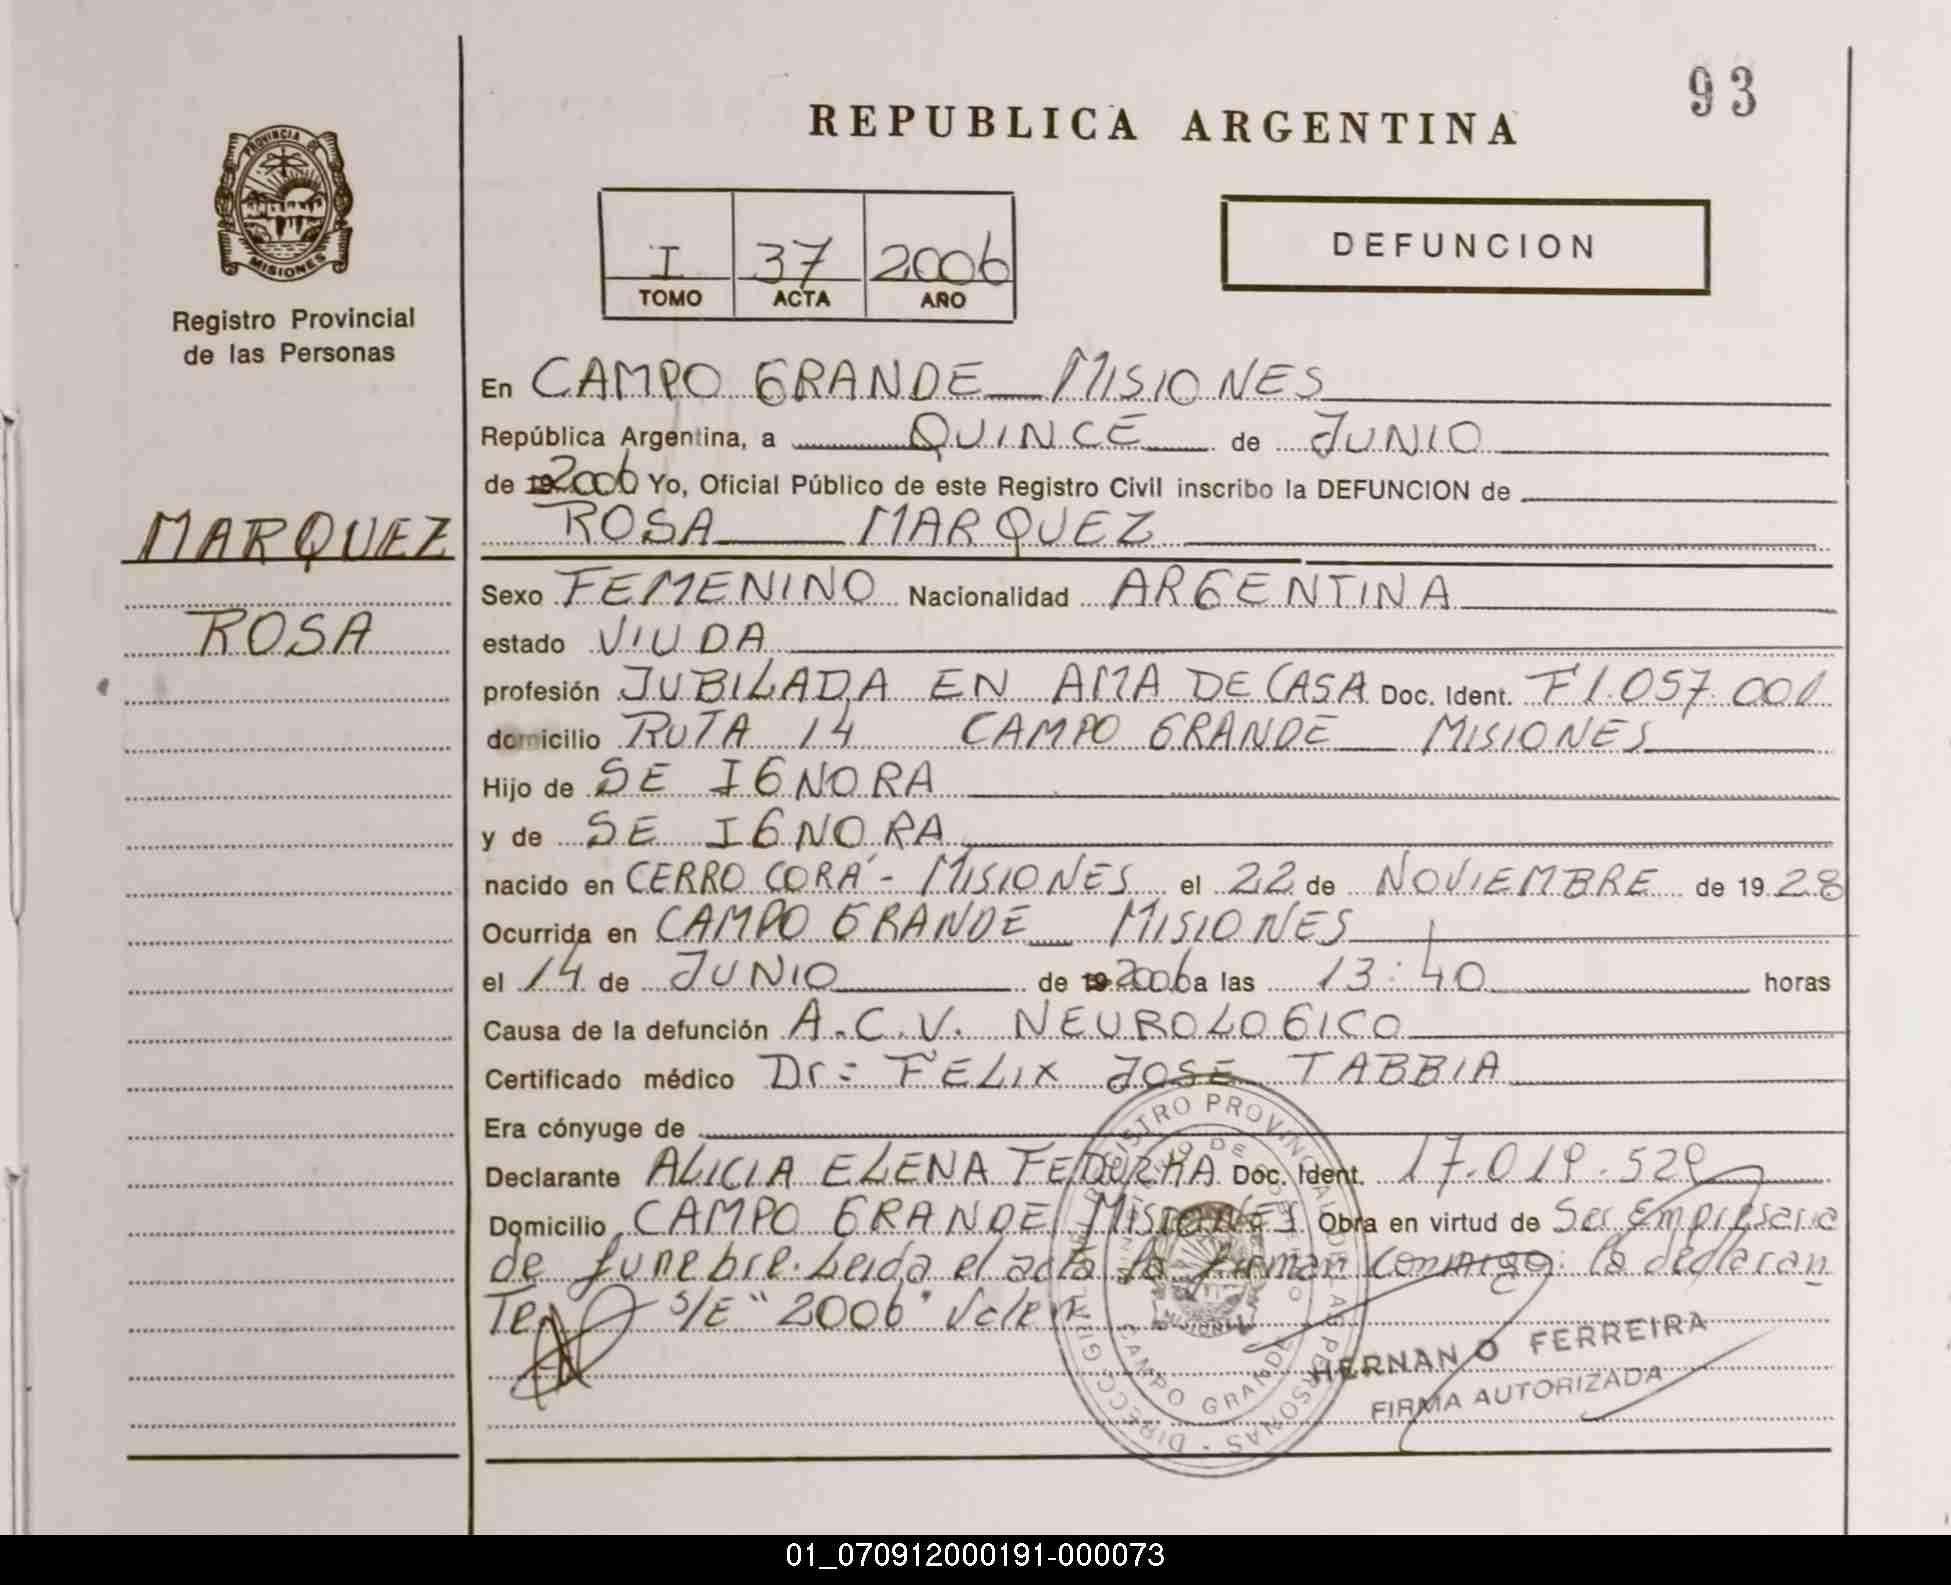 93
REPUBLICA ARGENTINA
PROVINCIA DE
MISIONES
Registro Provincial
de las Personas
I 37 2006
TOMO ACTA AÑO
DEFUNCION
En CAMPO GRANDE MISIONES
República Argentina, a QUINCE de JUNIO
de 19 2006 Yo, Oficial Público de este Registro Civil inscribo la DEFUNCION de
ROSA MARQUEZ
MARQUEZ
ROSA
Sexo FEMENINO Nacionalidad ARGENTINA
estado VIUDA
profesión JUBILADA EN AMA DE CASA Doc. Ident. F1.057.001
domicilio RUTA 14 CAMPO GRANDE MISIONES
Hijo de SE IGNORA
y de SE IGNORA
nacido en CERRO CORÁ - MISIONES el 22 de NOVIEMBRE de 19 28
Ocurrida en CAMPO GRANDE MISIONES
el 14 de JUNIO de 19 2006 a las 13:40 horas
Causa de la defunción A.C.V. NEUROLOGICO
Certificado médico Dr: FELIX JOSE TABBIA
Era cónyuge de
Declarante ALICIA ELENA Doc. Ident. 17.019.529
Domicilio CAMPO GRANDE MISIONES Obra en virtud de Ser Empresaria
de funebre. Leida el acta la firman conmigo: la declaran
Te S/E "2006" Valen
HERNAN O FERREIRA
FIRMA AUTORIZADA
REGISTRO PROVINCIAL DE LAS PERSONAS
CAMPO GRANDE
MISIONES
01_070912000191-000073